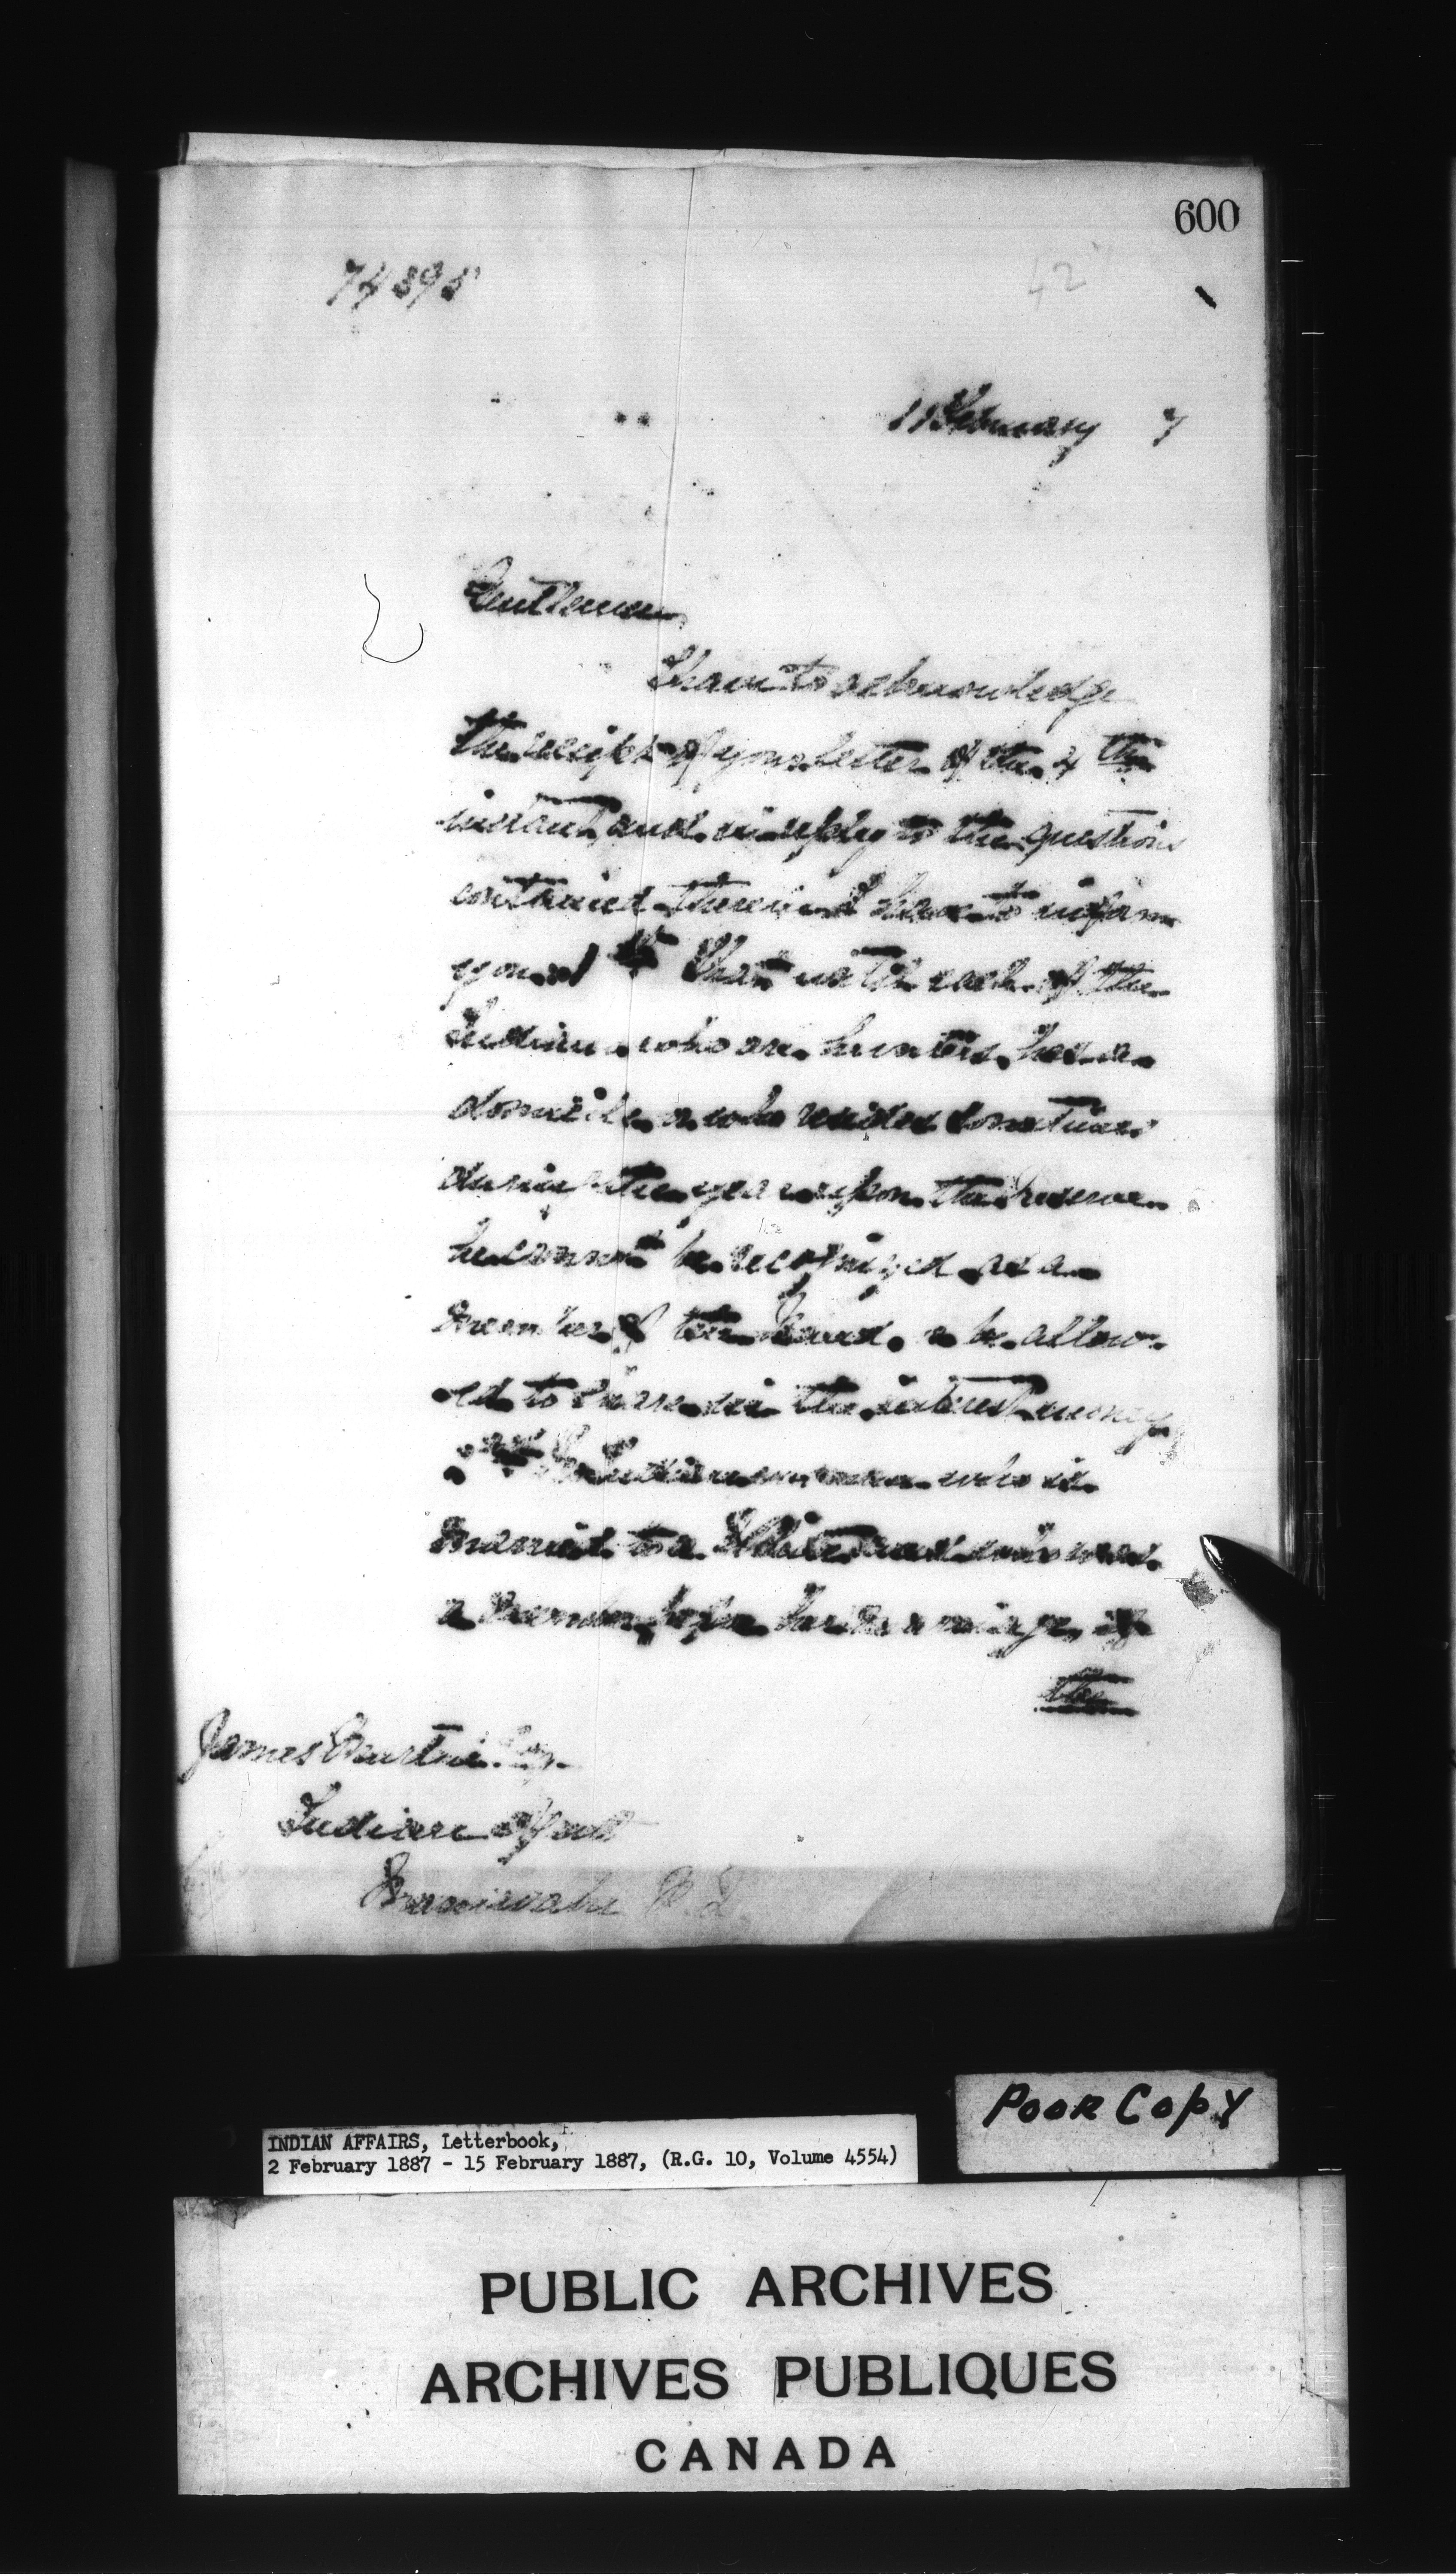 600
74895
42
11 February 7
Gentlemen,
I have to acknowledge
the receipt of your letter of the 4th
instant, and in reply to the questions
contained therein I have to inform
you 1st That until each of the
Indians who are hunters has a
domicile or who resides sometimes
during the year upon the Reserve
he cannot be recognized as a
member of the Band, or be allow-
ed to share in the interest money,
2nd Indian woman who is
married to a White and who was
a member before her marriage of
the
James Martin Esq.
Indian Agent
Maniwaki P.Q.
POOR COPY
INDIAN AFFAIRS, Letterbook,
2 February 1887 - 15 February 1887, (R.G. 10, Volume 4554)
PUBLIC ARCHIVES
ARCHIVES PUBLIQUES
CANADA